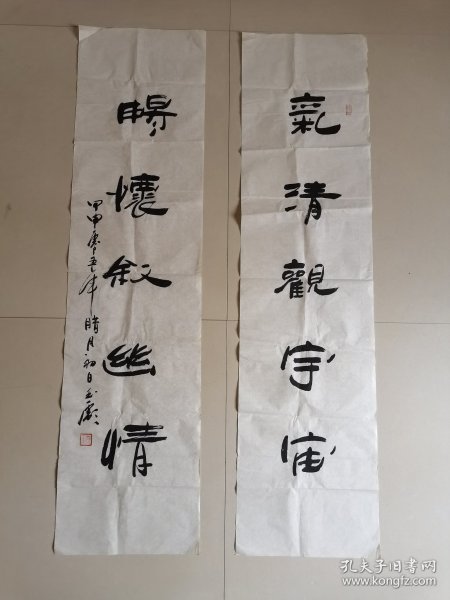 氣清觀宇宙
暢懷敘幽情
臘月初
孔夫子旧书网
www.kongfz.com